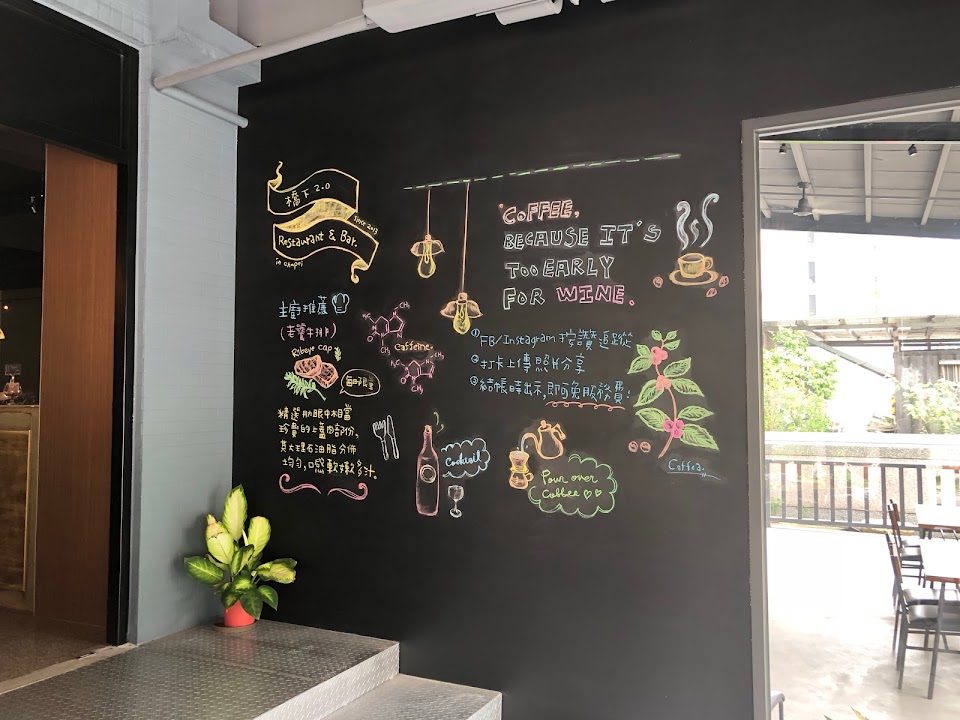 橋下 2.0
SINCE 2013
Restaurant & Bar.
in chupei
COFFEE,
BECAUSE IT'S
TOO EARLY
FOR WINE.
主廚推薦
(老饕牛排)
Ribeye cap
每日限量
精選肋眼中相當
珍貴的上蓋肉部份,
其大理石油脂分佈
均勻,口感軟嫩多汁.
H₃C
CH₃
caffeine.
CH₃
① FB/Instagram 按讚追蹤
② 打卡上傳照片分享
③ 結帳時出示,即可免服務費!
Cocktail
Pour over
Coffee
Coffea.